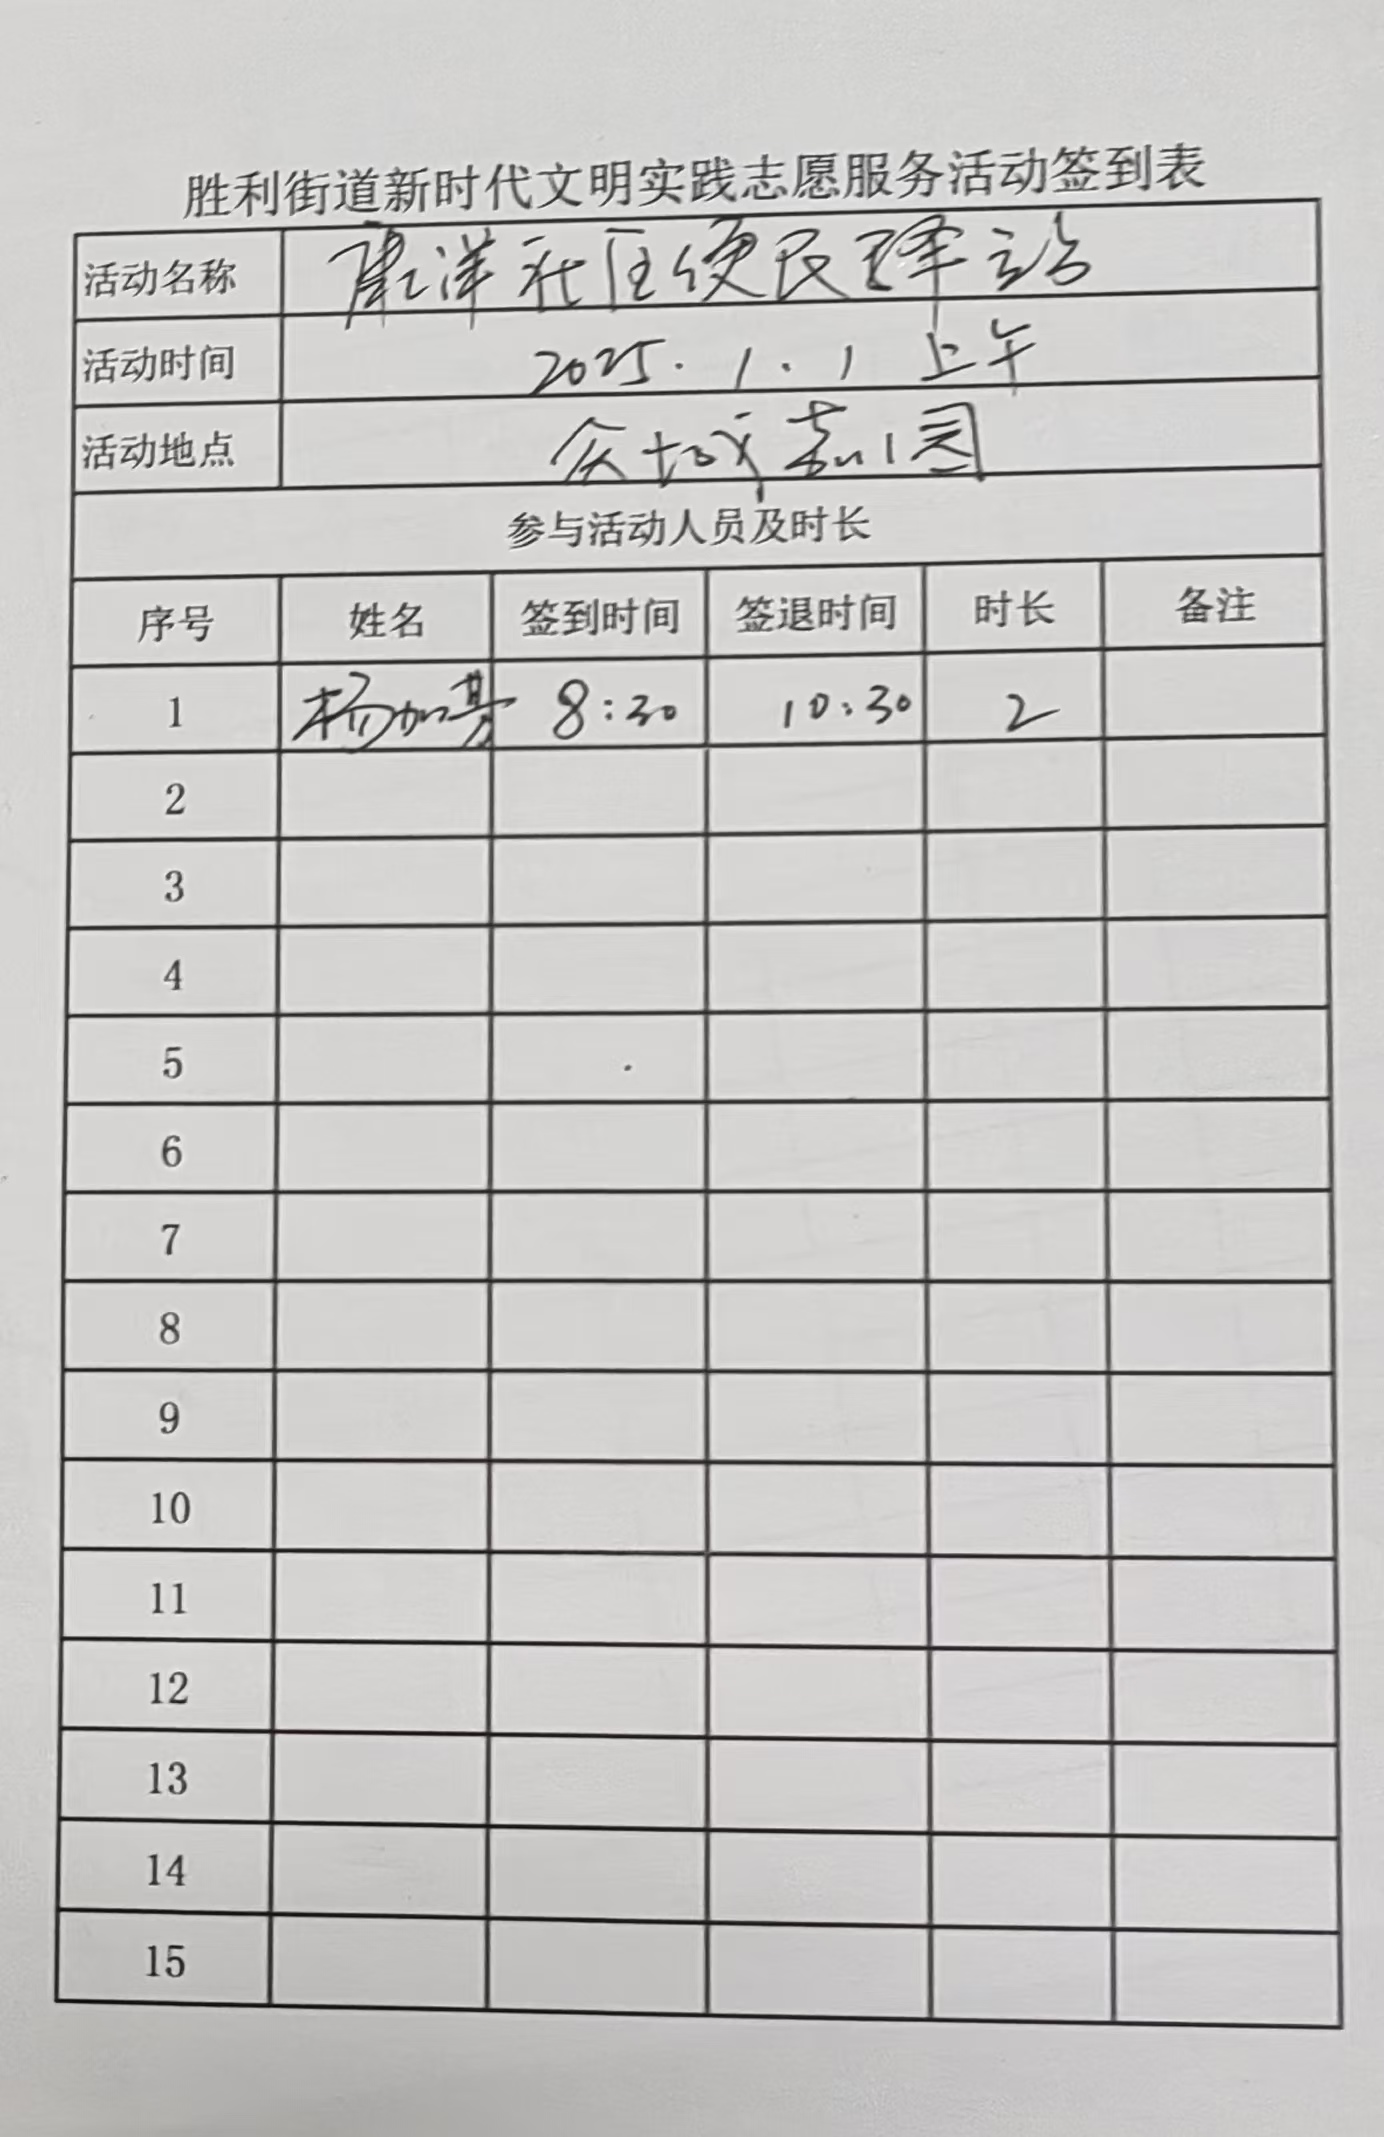 胜利街道新时代文明实践志愿服务活动签到表
活动名称 康洋社区便民驿站
活动时间 2025.1.1 上午
活动地点 众城嘉园
参与活动人员及时长
序号 姓名 签到时间 签退时间 时长 备注
1 杨加 8:30 10:30 2
2
3
4
5
6
7
8
9
10
11
12
13
14
15